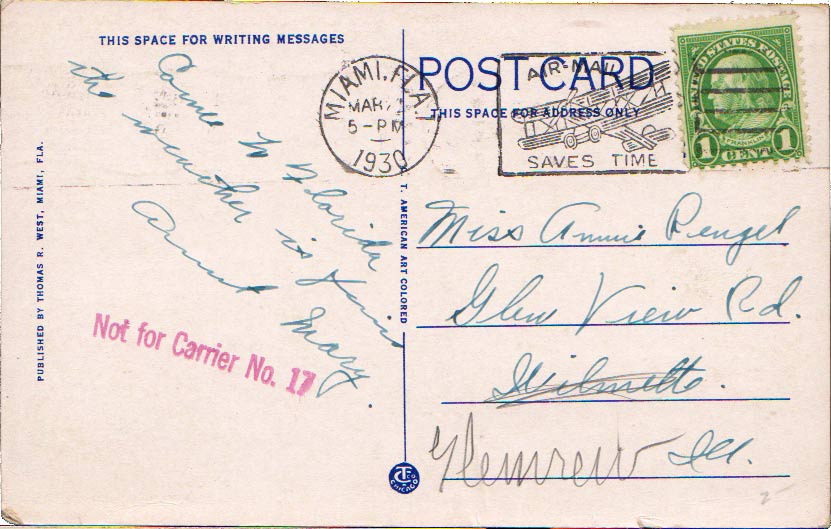 THIS SPACE FOR WRITING MESSAGES
Come to Florida
the weather is fine
Aunt Mary.
Not for Carrier No. 17
PUBLISHED BY THOMAS R. WEST, MIAMI, FLA.
C. T. AMERICAN ART COLORED
MIAMI, FLA.
MAR
5-PM
1930
POST CARD
THIS SPACE FOR ADDRESS ONLY
AIR-MAIL
SAVES TIME
UNITED STATES POSTAGE
FRANKLIN
1 CENT 1
Miss Annie Rengel
Glen View Rd.
Wilmette.
Glenview Ill.
CT CO
CHICAGO